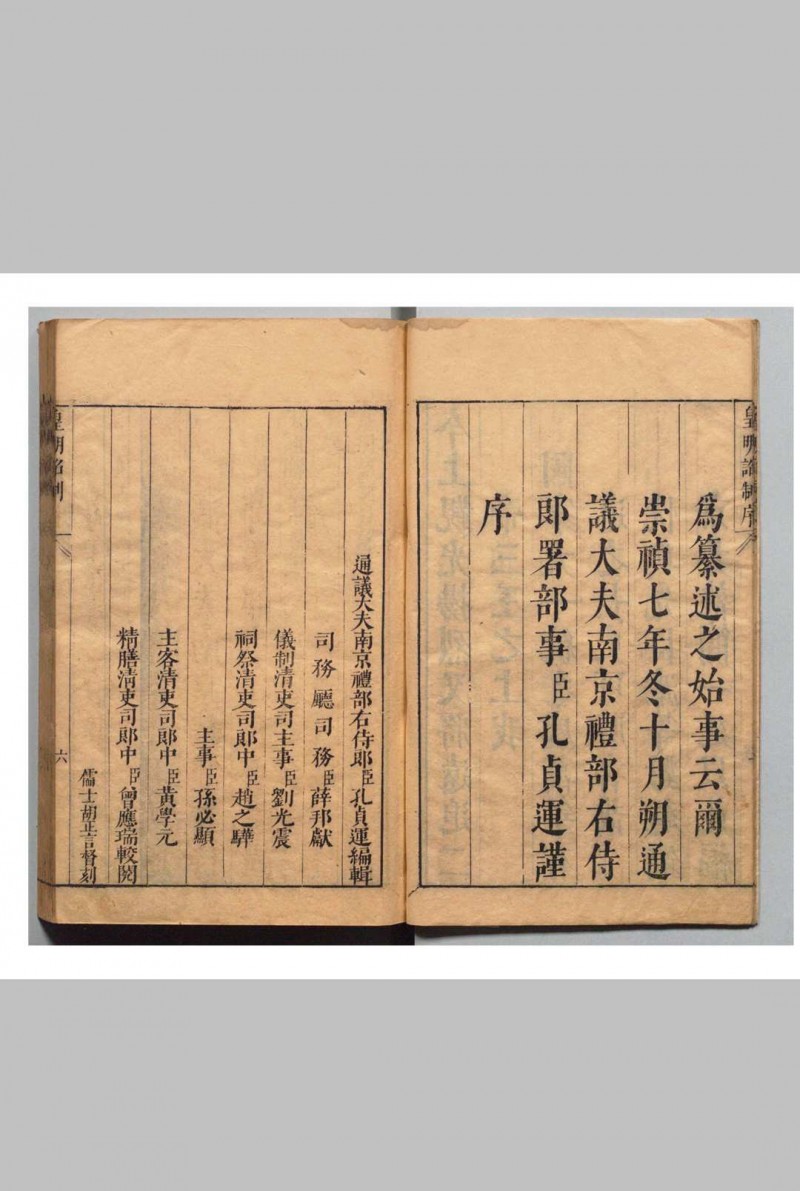 皇明詔制序
為纂述之始事云爾
崇禎七年冬十月朔通
議大夫南京禮部右侍
郎署部事臣孔貞運謹
序
通議大夫南京禮部右侍郎臣孔貞運編輯
司務廳司務臣薛邦獻
儀制清吏司主事臣劉光震
祠祭清吏司郎中臣趙之驊
主事臣孫必顯
主客清吏司郎中臣黃學元
精膳清吏司郎中臣曾應瑞較閱
儒士胡正言督刻
皇明詔制
六